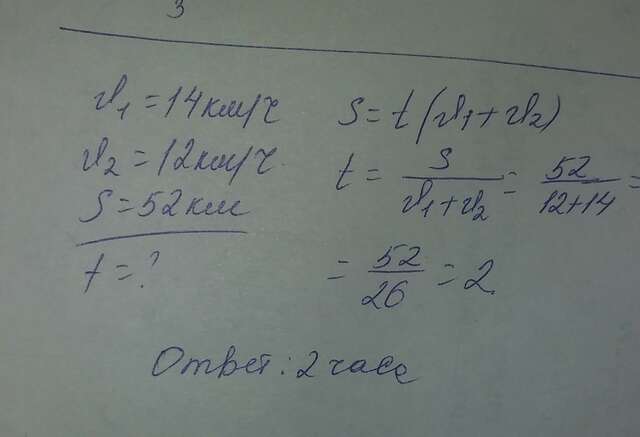 3
𝒱₁ = 14 км/ч
𝒱₂ = 12 км/ч.
S = 52 км
t = ?
S = t (𝒱₁ + 𝒱₂)
t = S / (𝒱₁ + 𝒱₂) = 52 / (12+14) =
= 52 / 26 = 2.
Ответ: 2 часа